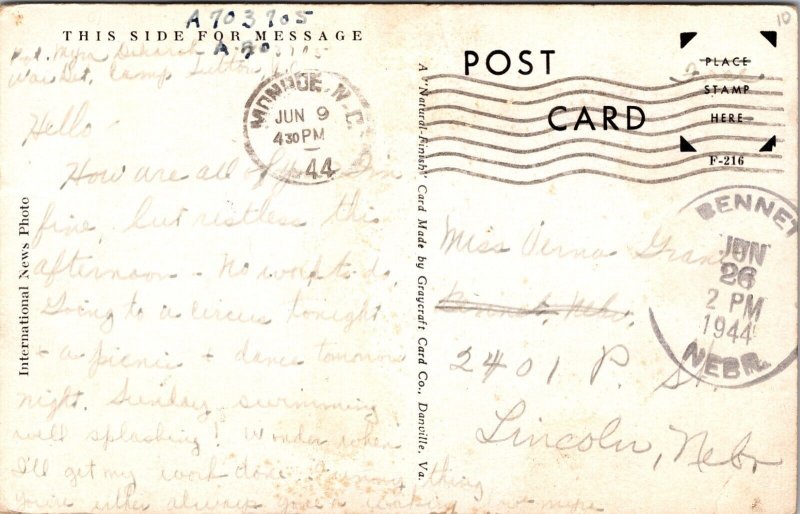 A703905
THIS SIDE FOR MESSAGE
A 90
Pvt.
Wac Det, Camp Sutton, N.C.
MONROE, N.C.
JUN 9
430 PM
44
Hello
How are all of you I'm
fine, but restless this
afternoon - No work to do.
Going to a circus tonight
- a picnic + dance tomorrow
night. Sunday swimming
well splashing! Wonder when
I'll get my work done. Funny thing
You're either always on a
International News Photo
A "Natural-Finish" Card Made by Graycraft Card Co., Danville, Va.
POST
CARD
PLACE
STAMP
HERE
F-216
10
Free
BENNET
JUN
26
2 PM
1944
NEBR.
Miss Verna
Bennet, Nebr.
2401 P. St.
Lincoln, Nebr